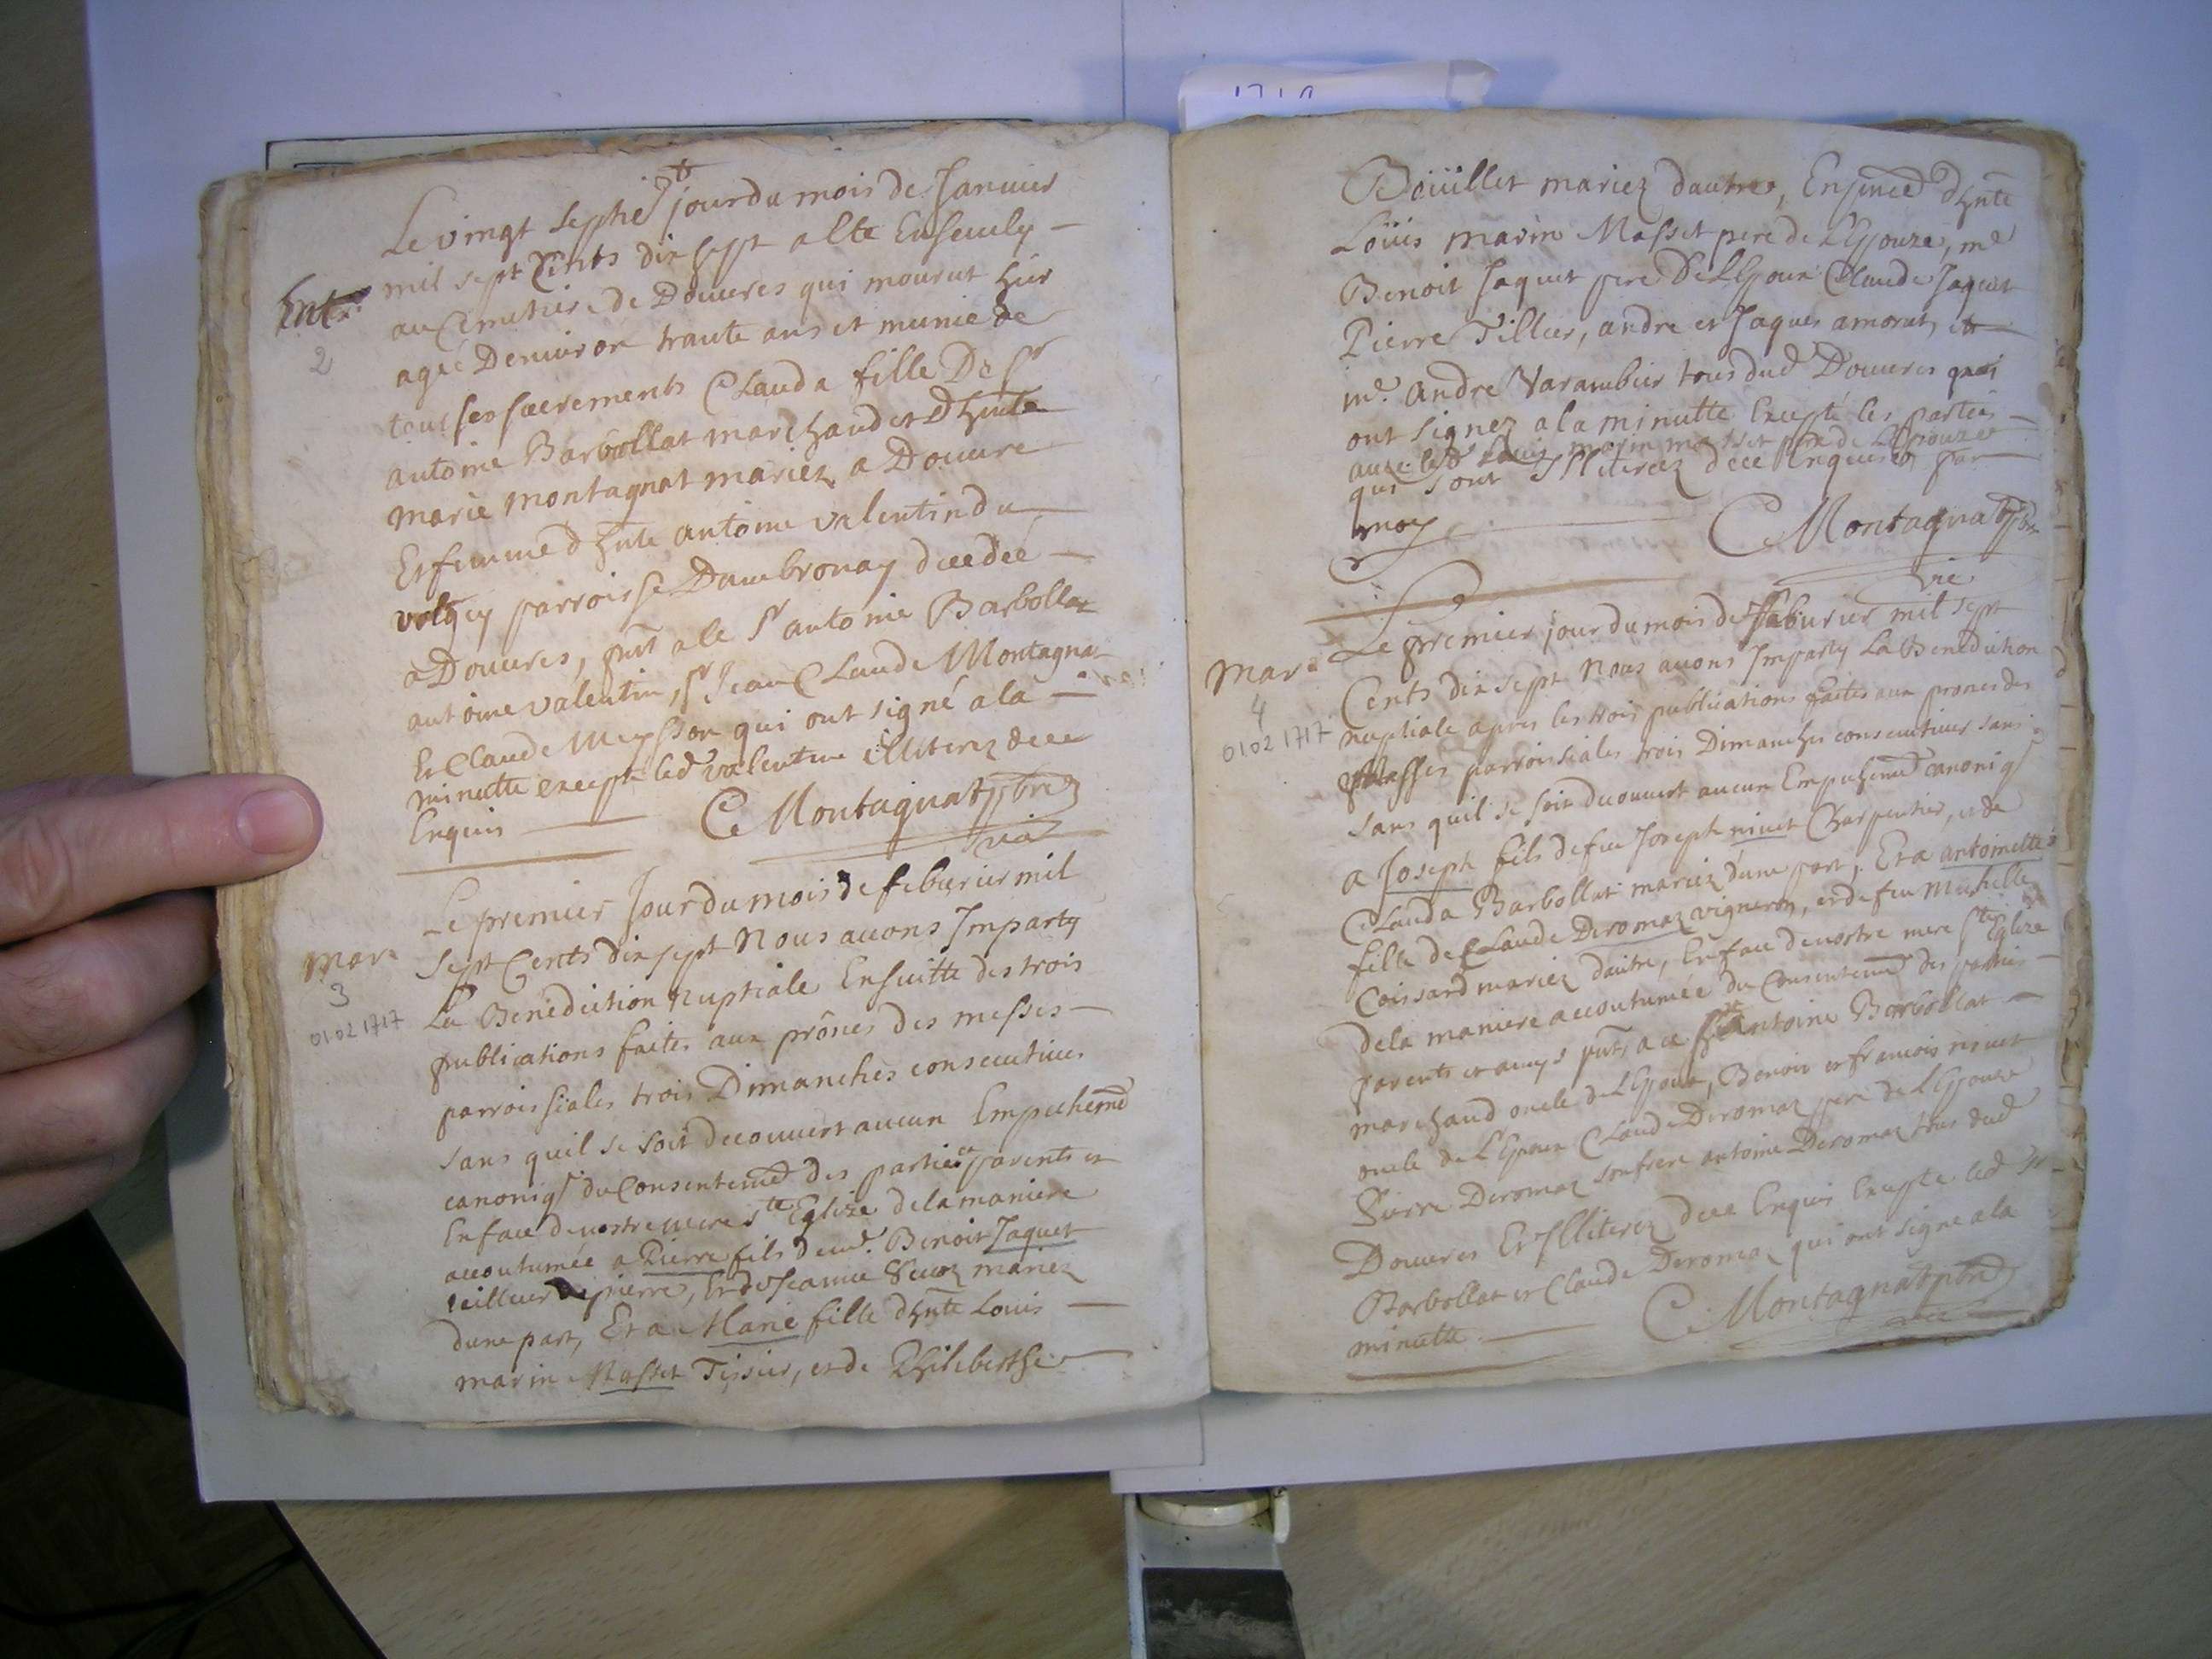 Le vingt septie jour du mois de Januier
mil sept Cents dix sept a este Enseuely
Ent.
au Cemetiere de Douures qui mourut hier
2
agée Denuiron trante ans et munie de
tous ses sacrements Clauda fille De sr
antoine Barbollat marchand et Dhnte
marie montagnat mariez a Douure
Et femme dhnte antoine valentin du
parroisse Dambronay decedée
a Douures, pnt a ce sr antoine Barbollat
antoine valentin, sr Jean Claude Montagnat
Et Claude qui ont signé a la
minutte except led valentin illiterez de ce
Enquis C Montagnat pbre
vic
Le premier Jour du mois de feburier mil
mar.
Sept Cents dix sept Nous auons Imparty
3
La Benediction nuptiale Ensuitte des trois
01.02 1717
publications faites aux prônes des messes
parroissiales trois Dimanches consecutiues
sans quil se soit decouuert aucun Empechemd
canoniq du Consentemd des parties et parents et
En face de nostre mere ste Eglize de la maniere
accoutumée a Pierre fils de md. Benoit Jaquet
tailleur de pierre, Et de Jeanne mariez
dune part, Et a Marie fille dhnte Louis
marin Masset Tissier, et de Philiberthe
1710
Boüillet mariez dautres, En pnced dhnte
Loüis marin Masset pere de LEpouze, md
Benoit Jaquet pere De LEpoux Claude Jaquet
Pierre Tillier, andre et Jaques amorat, et
md. andre Varambier tous dud Douures qui
ont signez a la minutte Excepté les parties
auec led Louis marin masset pere de LEpouze
qui sont Illiterez dece Enquis par
moy C Montagnat pbre
vic
Le premier jour du mois de feburier mil sept
mar.
Cents dix sept Nous auons Imparty La Benediction
4
nuptiale apres les trois publications faites aux prones des
01 02 1717
Messes parroissiales trois Dimanches consecutiues sans
sans quil se soit decouuert aucun Empechemd canoniq
a Joseph fils de feu Joseph niuet Charpentier, et de
Clauda Barbollat mariez dune part, Et a antoinette
fille de Claude Deromaz vigneron, et de feu Michelle
Coissard mariez dautre, En face de nostre mere ste Eglize
de la maniere accoutumée du Consentemd des parties
parents et amys pnts a ce sr Antoine Barbollat
marchand oncle de LEpoux, Benoit et francois niuet
oncle de LEpoux Claude Deromaz pere de LEpouze
Pierre Deromaz son frere antoine Deromaz tous dud
Douures Et Illiterez dece Enquis Excepte led sr
Barbollat et Claude Deromaz qui ont signe a la
minutte C Montagnat pbre
vic